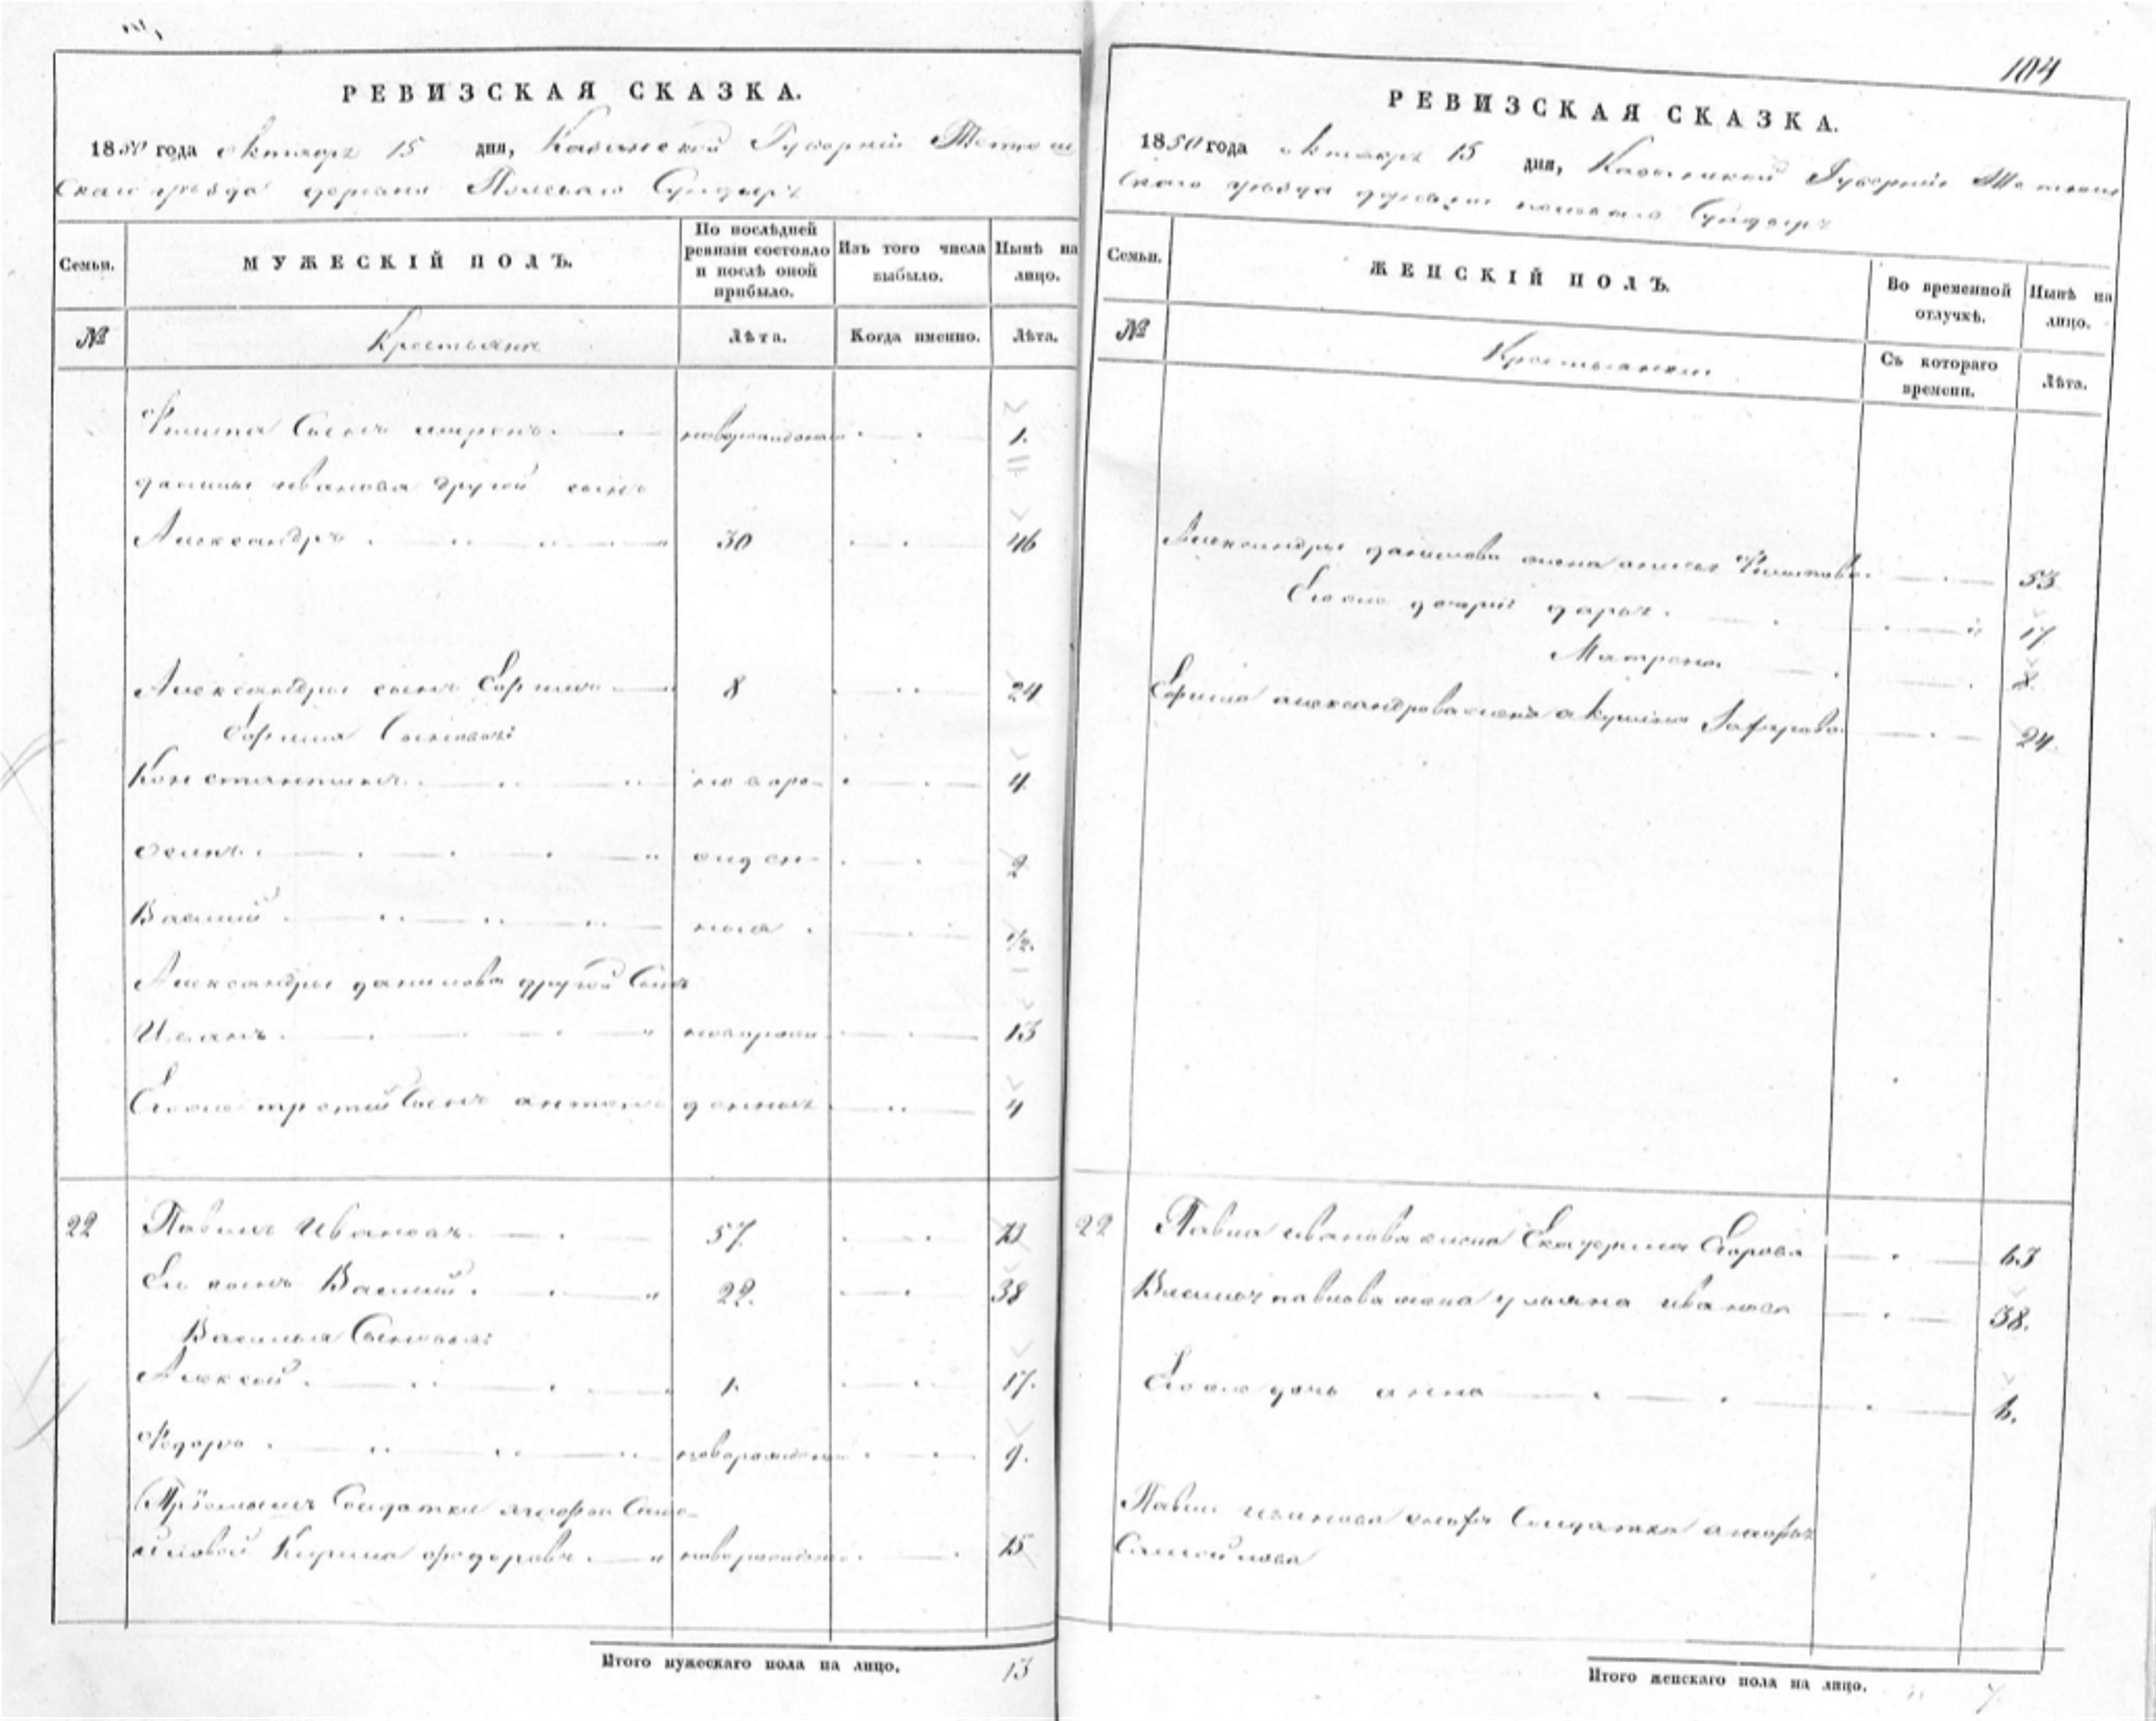 РЕВИЗСКАЯ СКАЗКА.
1850 года октября 15 дня, Казанской Губернии Тетюш
скаго уезда деревни Полеваго Сундырь
Семьи.
МУЖЕСКІЙ ПОЛЪ.
По послѣдней ревизіи состояло и послѣ оной прибыло.
Изъ того числа выбыло.
Нынѣ на лицо.
№
Крестьяне
Лѣта.
Когда именно.
Лѣта.
Филипа Сынъ новорожденой 1.
данилы иванова другой сынъ
Александръ 30 46
Александры сынъ Ефимъ 8 24
Ефима Сыновья:
Константинъ новоро- 4
осипъ жден- 2
Василий ныя 1/2.
Александры данилова другой Сынъ
Иванъ новорож 13
Ево третий Сынъ антонъ денныя 4
22 Павилъ Ивановъ 57. 73
Ево сынъ Василий 22. 38
Василья Сыновья:
Алексей 1. 17.
Федоръ новорожден 9.
Приемышъ Солдатки Само-
йловой Кирила федоровъ новорожден 15
Итого мужескаго пола на лицо. 13
104
РЕВИЗСКАЯ СКАЗКА.
1850 года октября 15 дня, Казанской Губернии Тетюш
скаго уезда деревни полеваго Сундырь
Семьи.
ЖЕНСКІЙ ПОЛЪ.
Во временной отлучкѣ.
Нынѣ на лицо.
№
Крестьянки
Съ котораго времени.
Лѣта.
Александры данилова жена анисья Филипова 53
Ево дочери дарья 17
Матрена 8.
Ефима александрова жена акулина 24.
22 Павла иванова жена Екатерина Егорова 63
Василья павлова жена ульяна иванова 38.
Ево дочь анна 6.
Павла иванова сноха Солдатка
Самойлова
Итого женскаго пола на лицо. 7